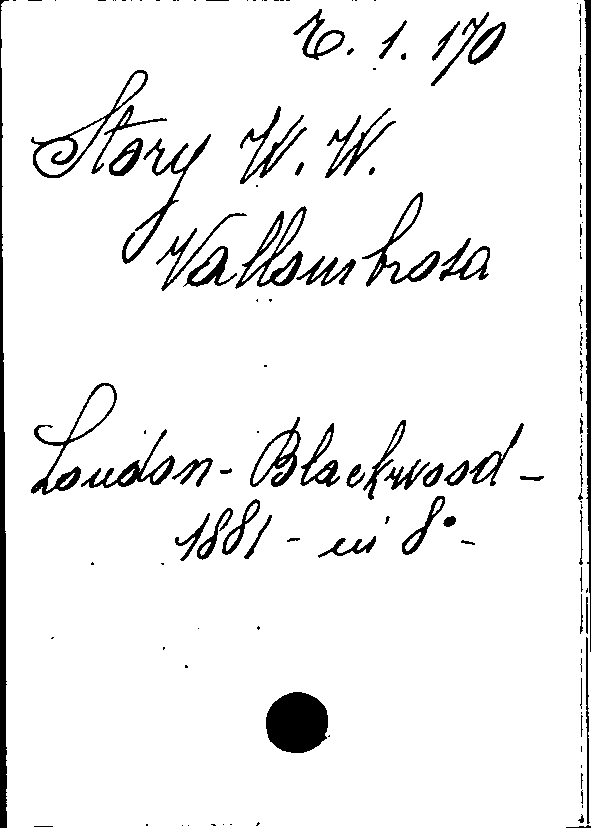 E. 1. 170
Story W. W.
Vallombrosa
London - Blackwood -
1881 - in 8° -